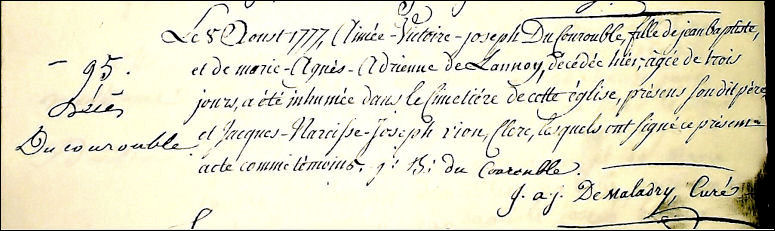 Le 5 Aoust 1777, Aimée-Victoire-joseph Du Courouble, fille de jean baptiste,
et de marie-Agnès-Adrienne de Lannoy, décédée hier, agée de trois
jours, a été inhumée dans le Cimetière de cette église, présens son dit père,
et Jacques-Narcisse-Joseph rion, Clerc, lesquels ont signé ce présent
acte comme témoins. j: B: du Courouble.
J. a. j. De Maladry, Curé
95.
Décès
Du courouble